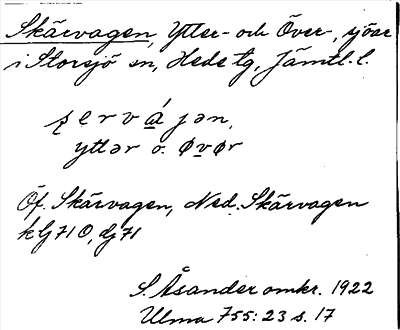 Skärvagen, Ytter- och Över-, sjöar
i Storsjö sn, Hede tg, Jämtl. l.
ʂ e r v á j ə n,
yttər o. øvør
Öf. Skärvagen, Ned. Skärvagen
k lj 71 O, dj 71
S. Åsander omkr. 1922
Ulma 755: 23 s. 17